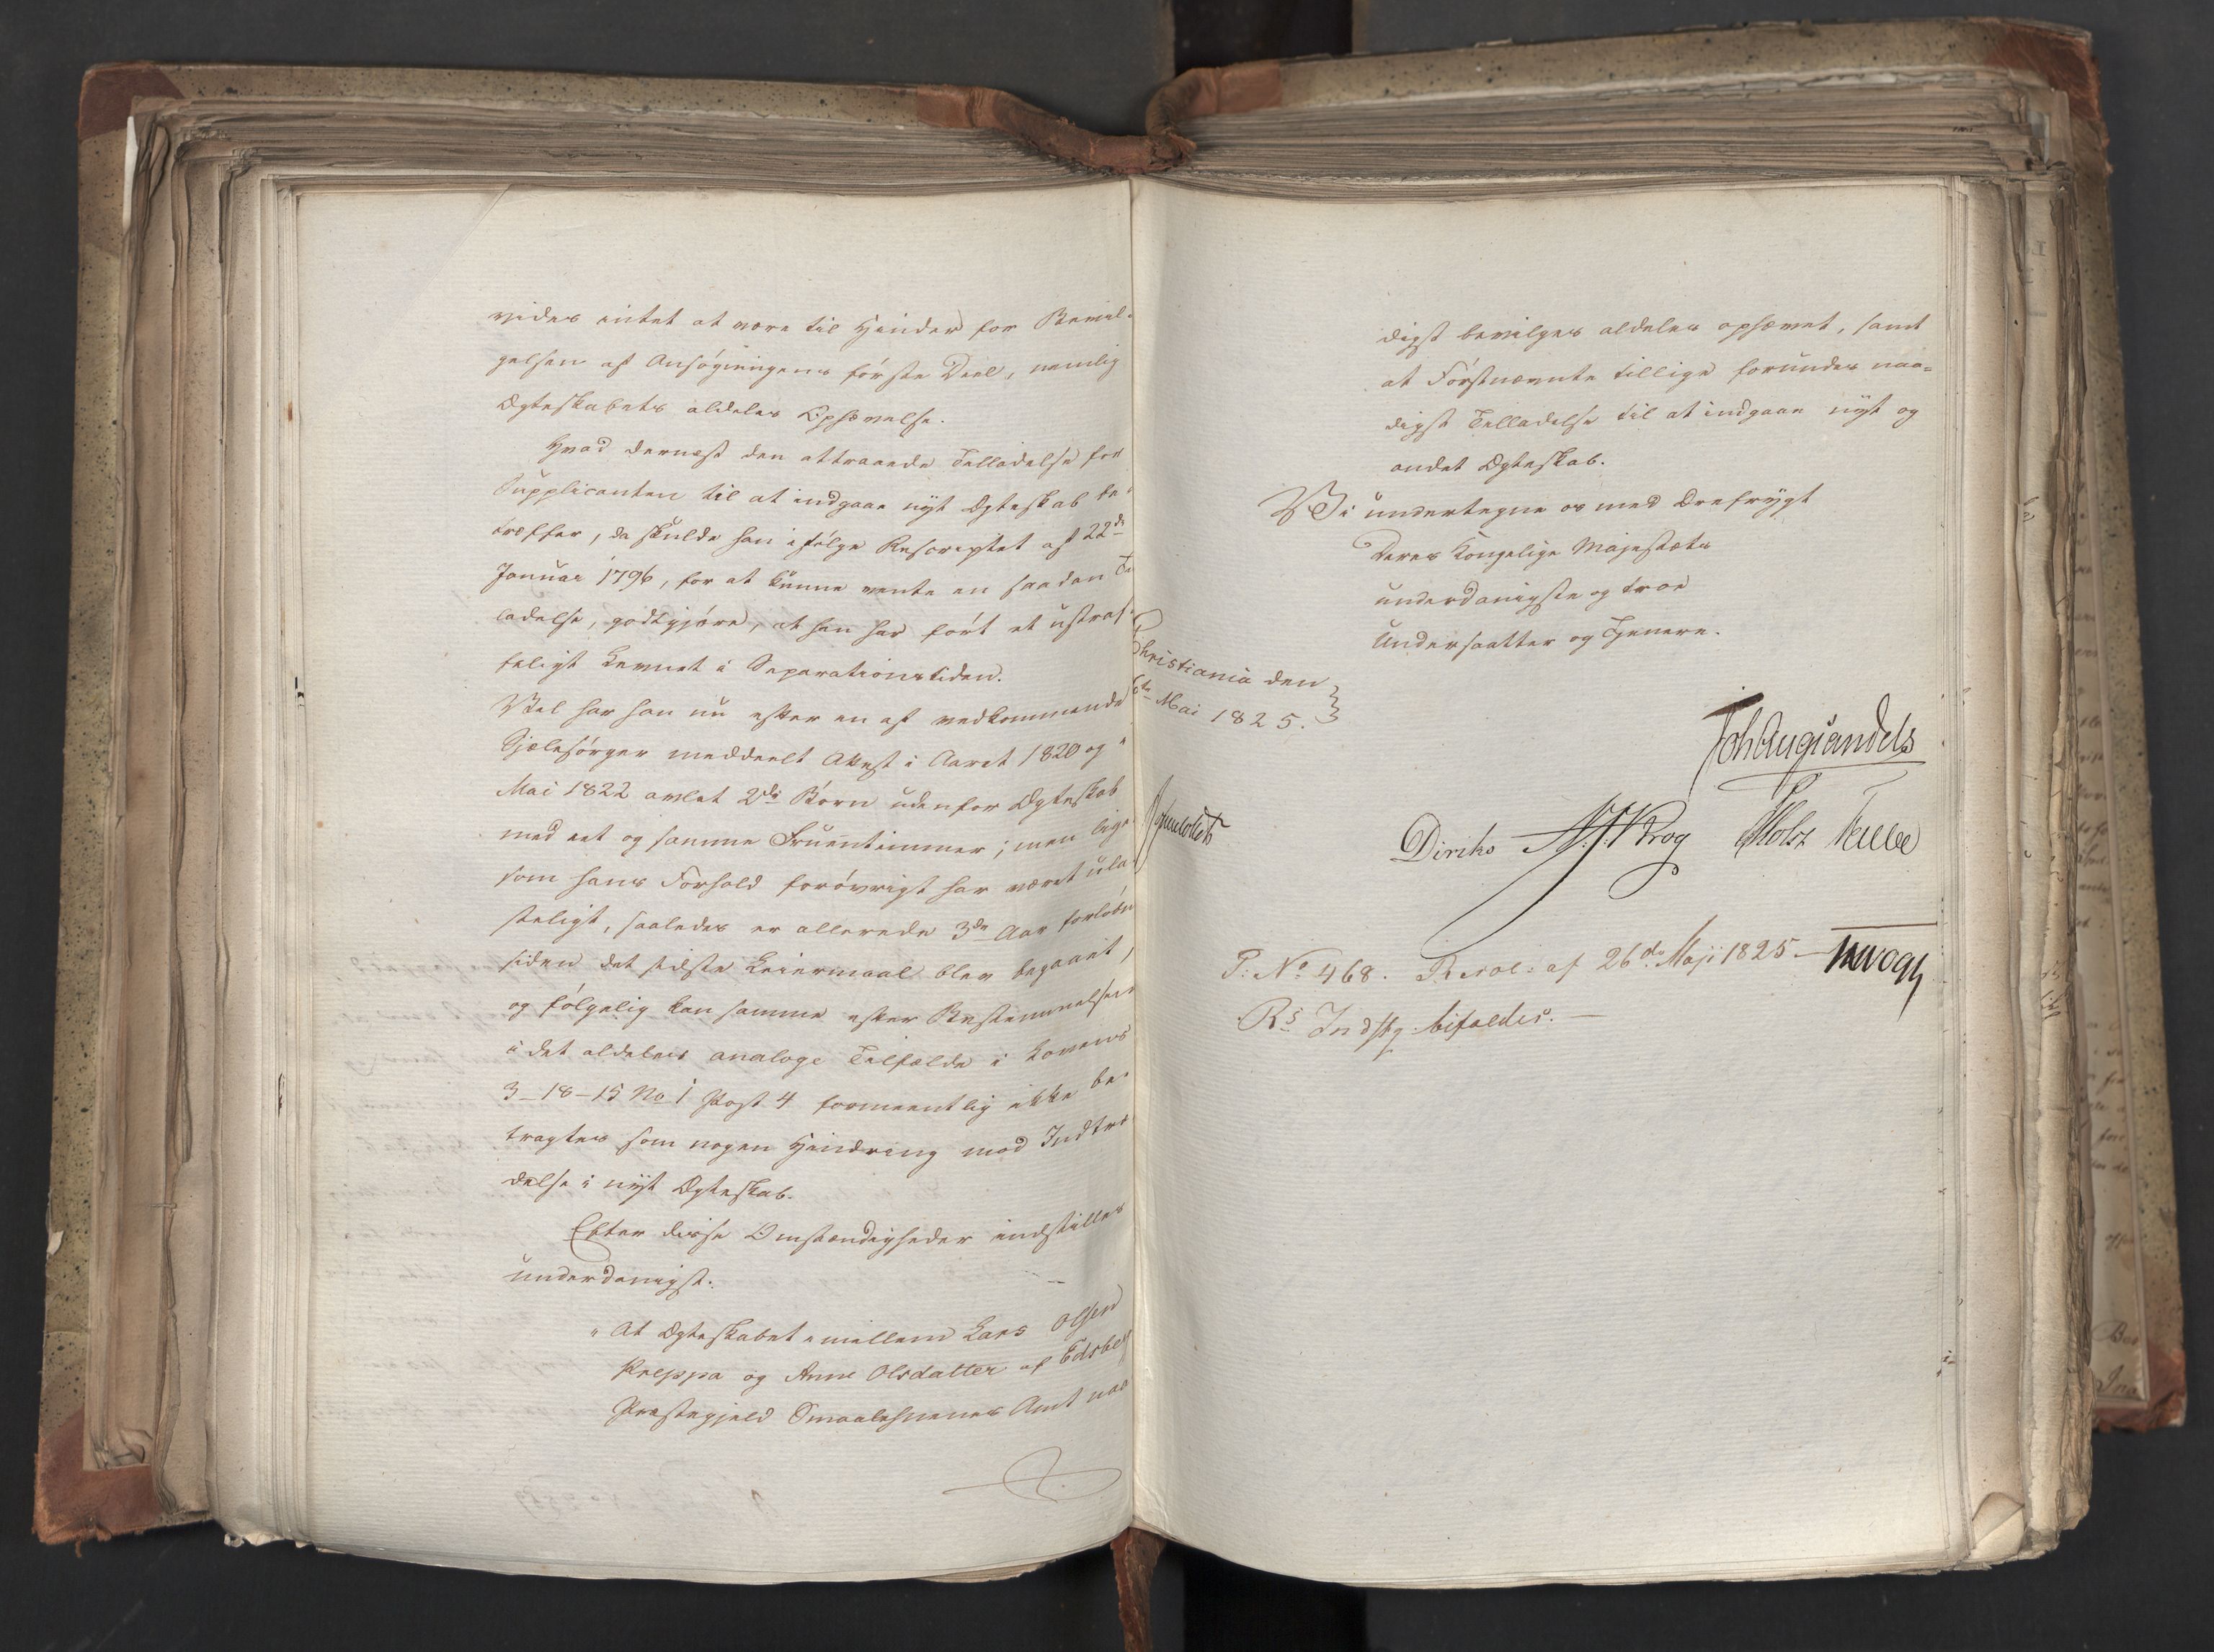 vides intet at være til Hinder for Bevil-
gelsen af Ansøgningens første Deel, nemlig
Ægteskabets aldeles Ophævelse.
Hvad dernæst den attraaede Tilladelse for
Supplicanten til at indgaae nyt Ægteskab be-
træffer, da skulde han ifølge Rescriptet af 22de
Januar 1796, for at kunne vente en saadan Til
ladelse, godtgjøre, at han har ført et ustraf-
feligt Levnet i Separationstiden.
Vel har han nu efter en af vedkommende
Sjælesørger meddeelt Attest i Aaret 1820 og i
Mai 1822 avlet 2de Børn udenfor Ægteskab
med eet og samme Fruentimmer; men lige-
som hans Forhold forøvrigt har været ula-
steligt, saaledes er allerede 3de Aar forløbne
siden det sidste Leiermaal blev begaaet,
og følgelig kan samme efter Bestemmelsen
i det aldeles analoge Tilfælde i Lovens
3-18-15 No 1 Post 4 formeentlig ikke be-
tragtes som nogen Hindring mod Indtræ
delse i nyt Ægteskab.
Efter disse Omstændigheder indstilles
underdanigst:
"At Ægteskabet imellem Lars Olsen
Kreppa og Anne Olsdatter af Edsberg
Præstegjeld Smaalehnenes Amt naa
digst bevilges aldeles ophævet, samt
at Førstnævnte tillige forundes naa-
digst Tilladelse til at indgaae nyt og
andet Ægteskab.
Vi undertegne os med Ærefrygt
Deres Kongelige Majestæts
underdanigste og troe
Undersaatter og Tjenere.
Christiania den
6te Mai 1825.
Joh Aug Sandels
Diriks N. J. Krog PHolst
P: No 468. Resol: af 26de Maji 1825.
Rs Indstg bifaldes.